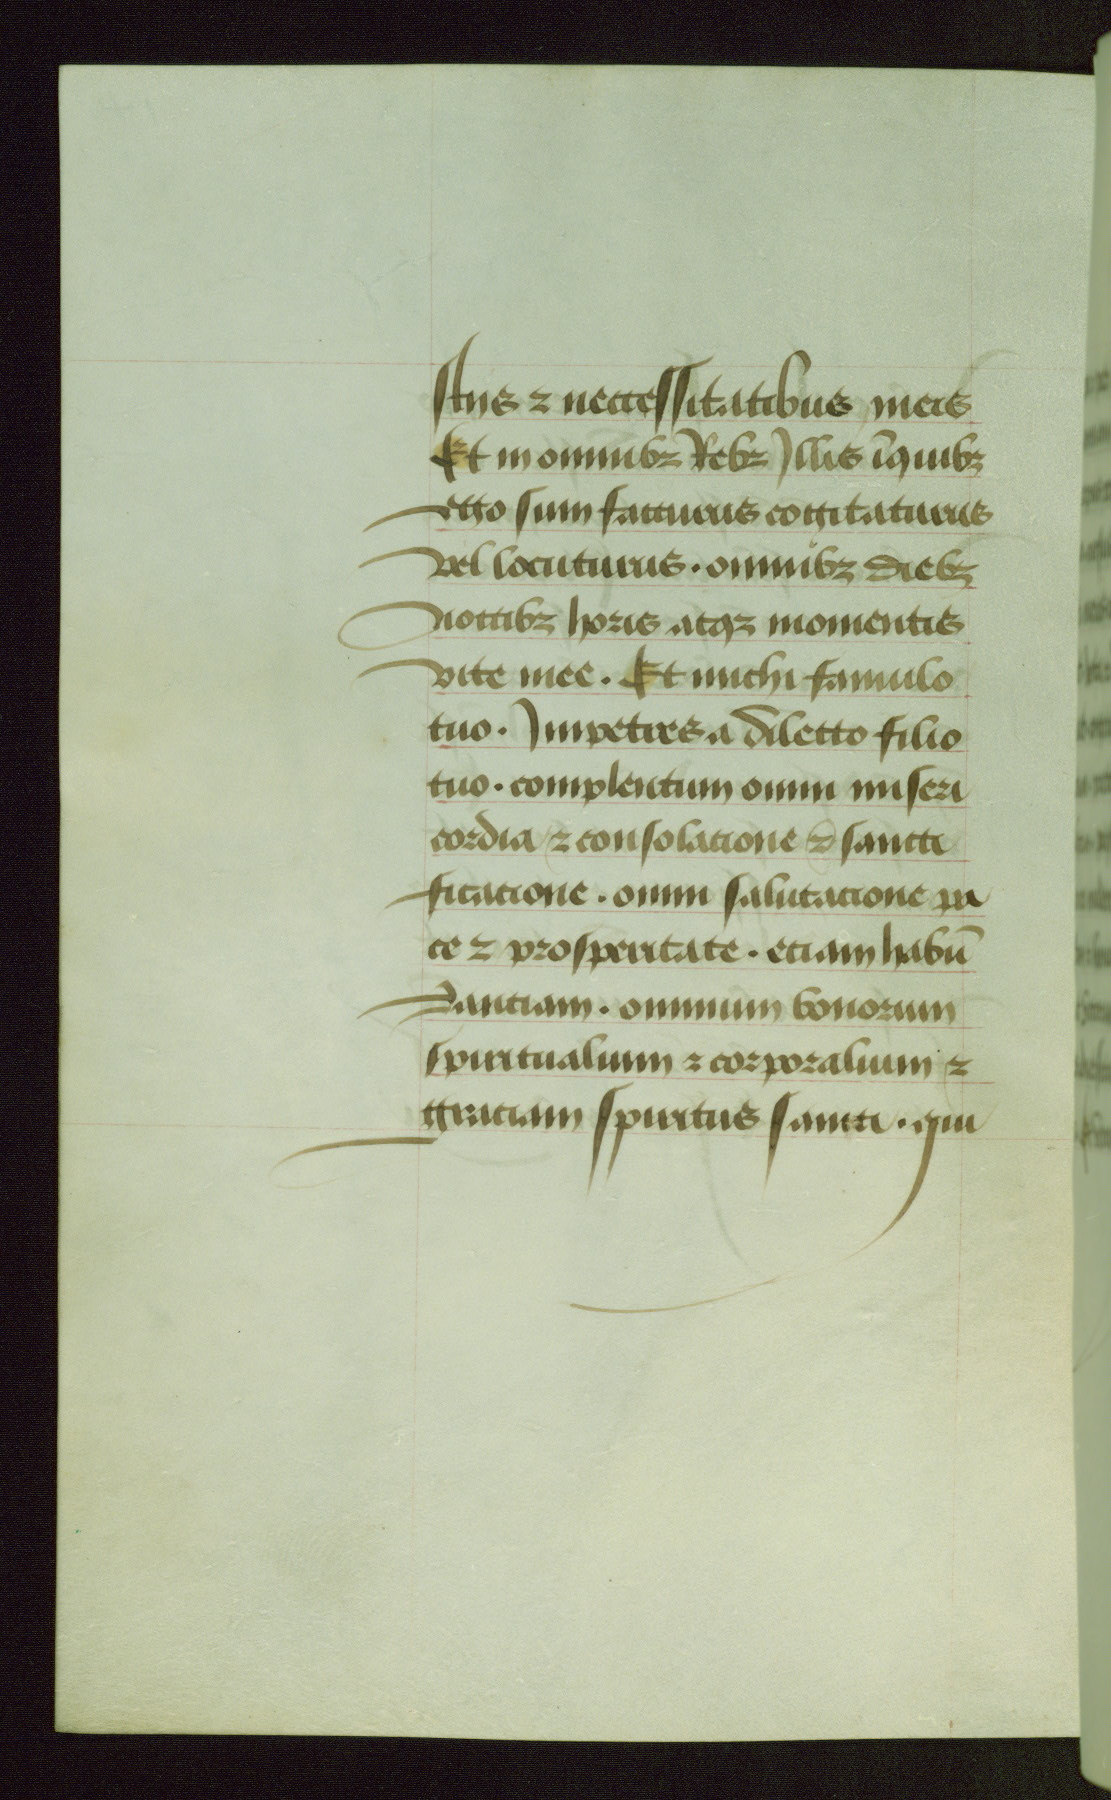 stijs ⁊ neccessitatibus meis
Et in omnibꝫ Rebꝫ Illis īquibꝫ
ego sum facturus cogitaturus
vel locuturus · omnibꝫ diebꝫ
noctibꝫ horis atqꝫ momentis
vite mee · Et michi famulo
tuo · Impetres a dilecto filio
tuo · complentum omni miseri
cordia ⁊ consolacione ⁊ sancti
ficacione · omni salutacione pa
ce ⁊ prosperitate · etiam habū
dantiam · omnium bonorum
spiritualium ⁊ corporalium ⁊
graciam spiritus sancti · qui